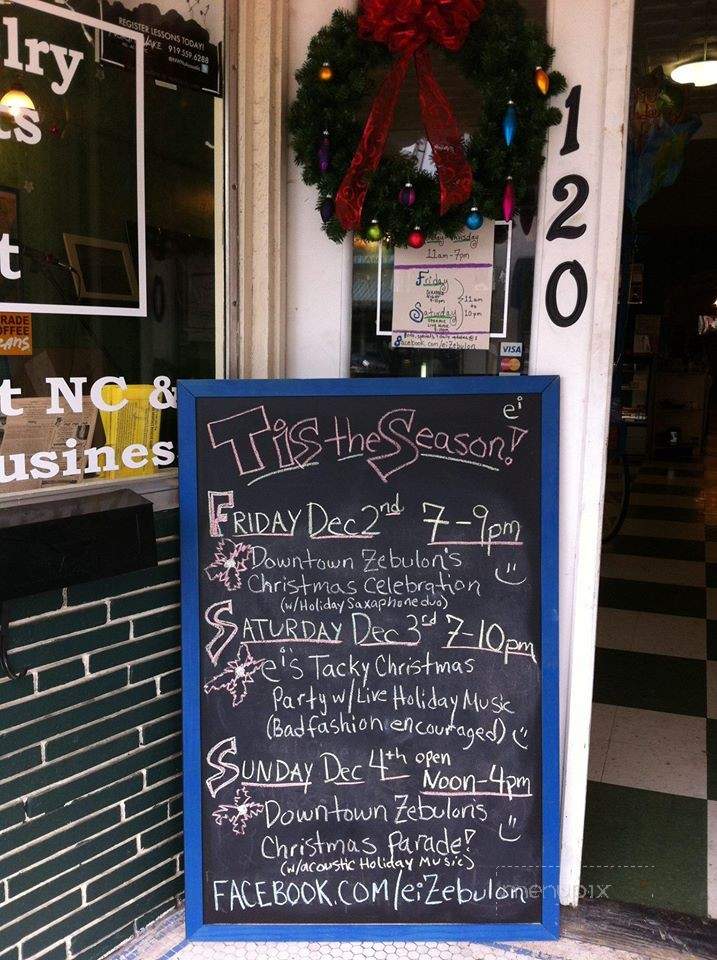 REGISTER LESSONS TODAY!
WAKE 919 559 6288
lry
ts
t
RADE
OFFEE
t NC &
usines
120
11am-7pm
Friday
Saturday
11am
to
10pm
facebook.com/eiZebulon
VISA
ei
Tis the Season!
FRIDAY Dec 2nd 7-9pm
Downtown Zebulon's
Christmas Celebration
(w/Holiday Saxaphone duo)
SATURDAY Dec 3rd 7-10pm
ei's Tacky Christmas
Party w/Live Holiday Music
(Bad fashion encouraged)
SUNDAY Dec 4th open
Noon-4pm
Downtown Zebulons
Christmas Parade!
(w/acoustic Holiday Music)
FACEBOOK.COM/eiZebulon
menupix